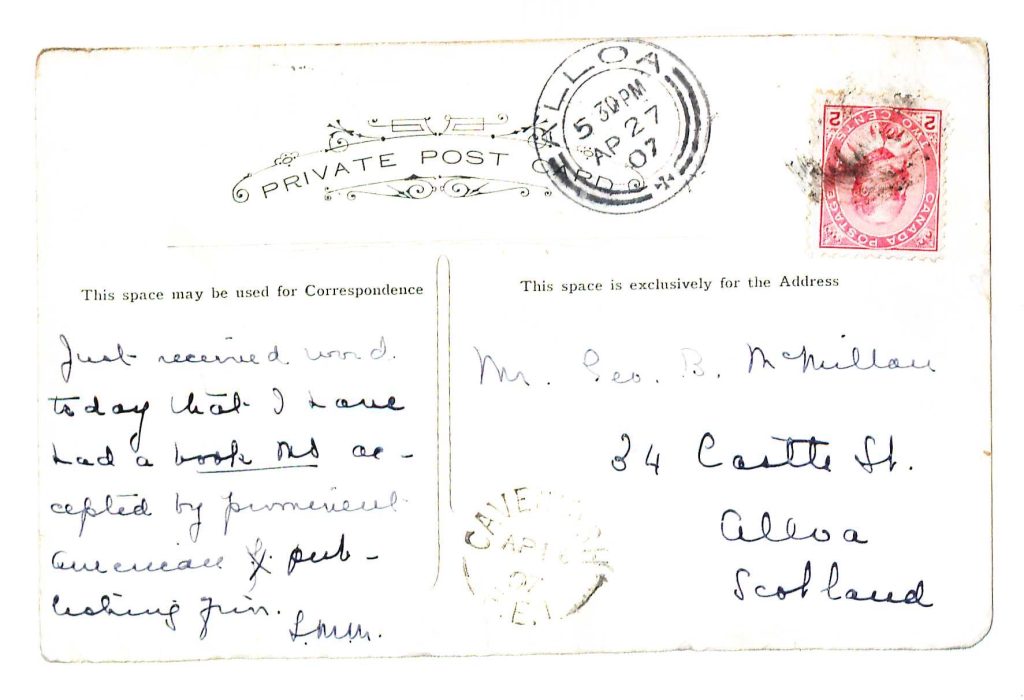 PRIVATE POST CARD
ALLOA
5 30PM
AP 27
07
2 2
TWO CENTS
CANADA POSTAGE
This space may be used for Correspondence
This space is exclusively for the Address
Just received word
today that I have
had a book MS ac-
cepted by prominent
American pub-
lishing firm.
L.M.M.
Mr. Geo. B. McMillan
34 Castle St.
Alloa
Scotland
AP
07
P.E.I.